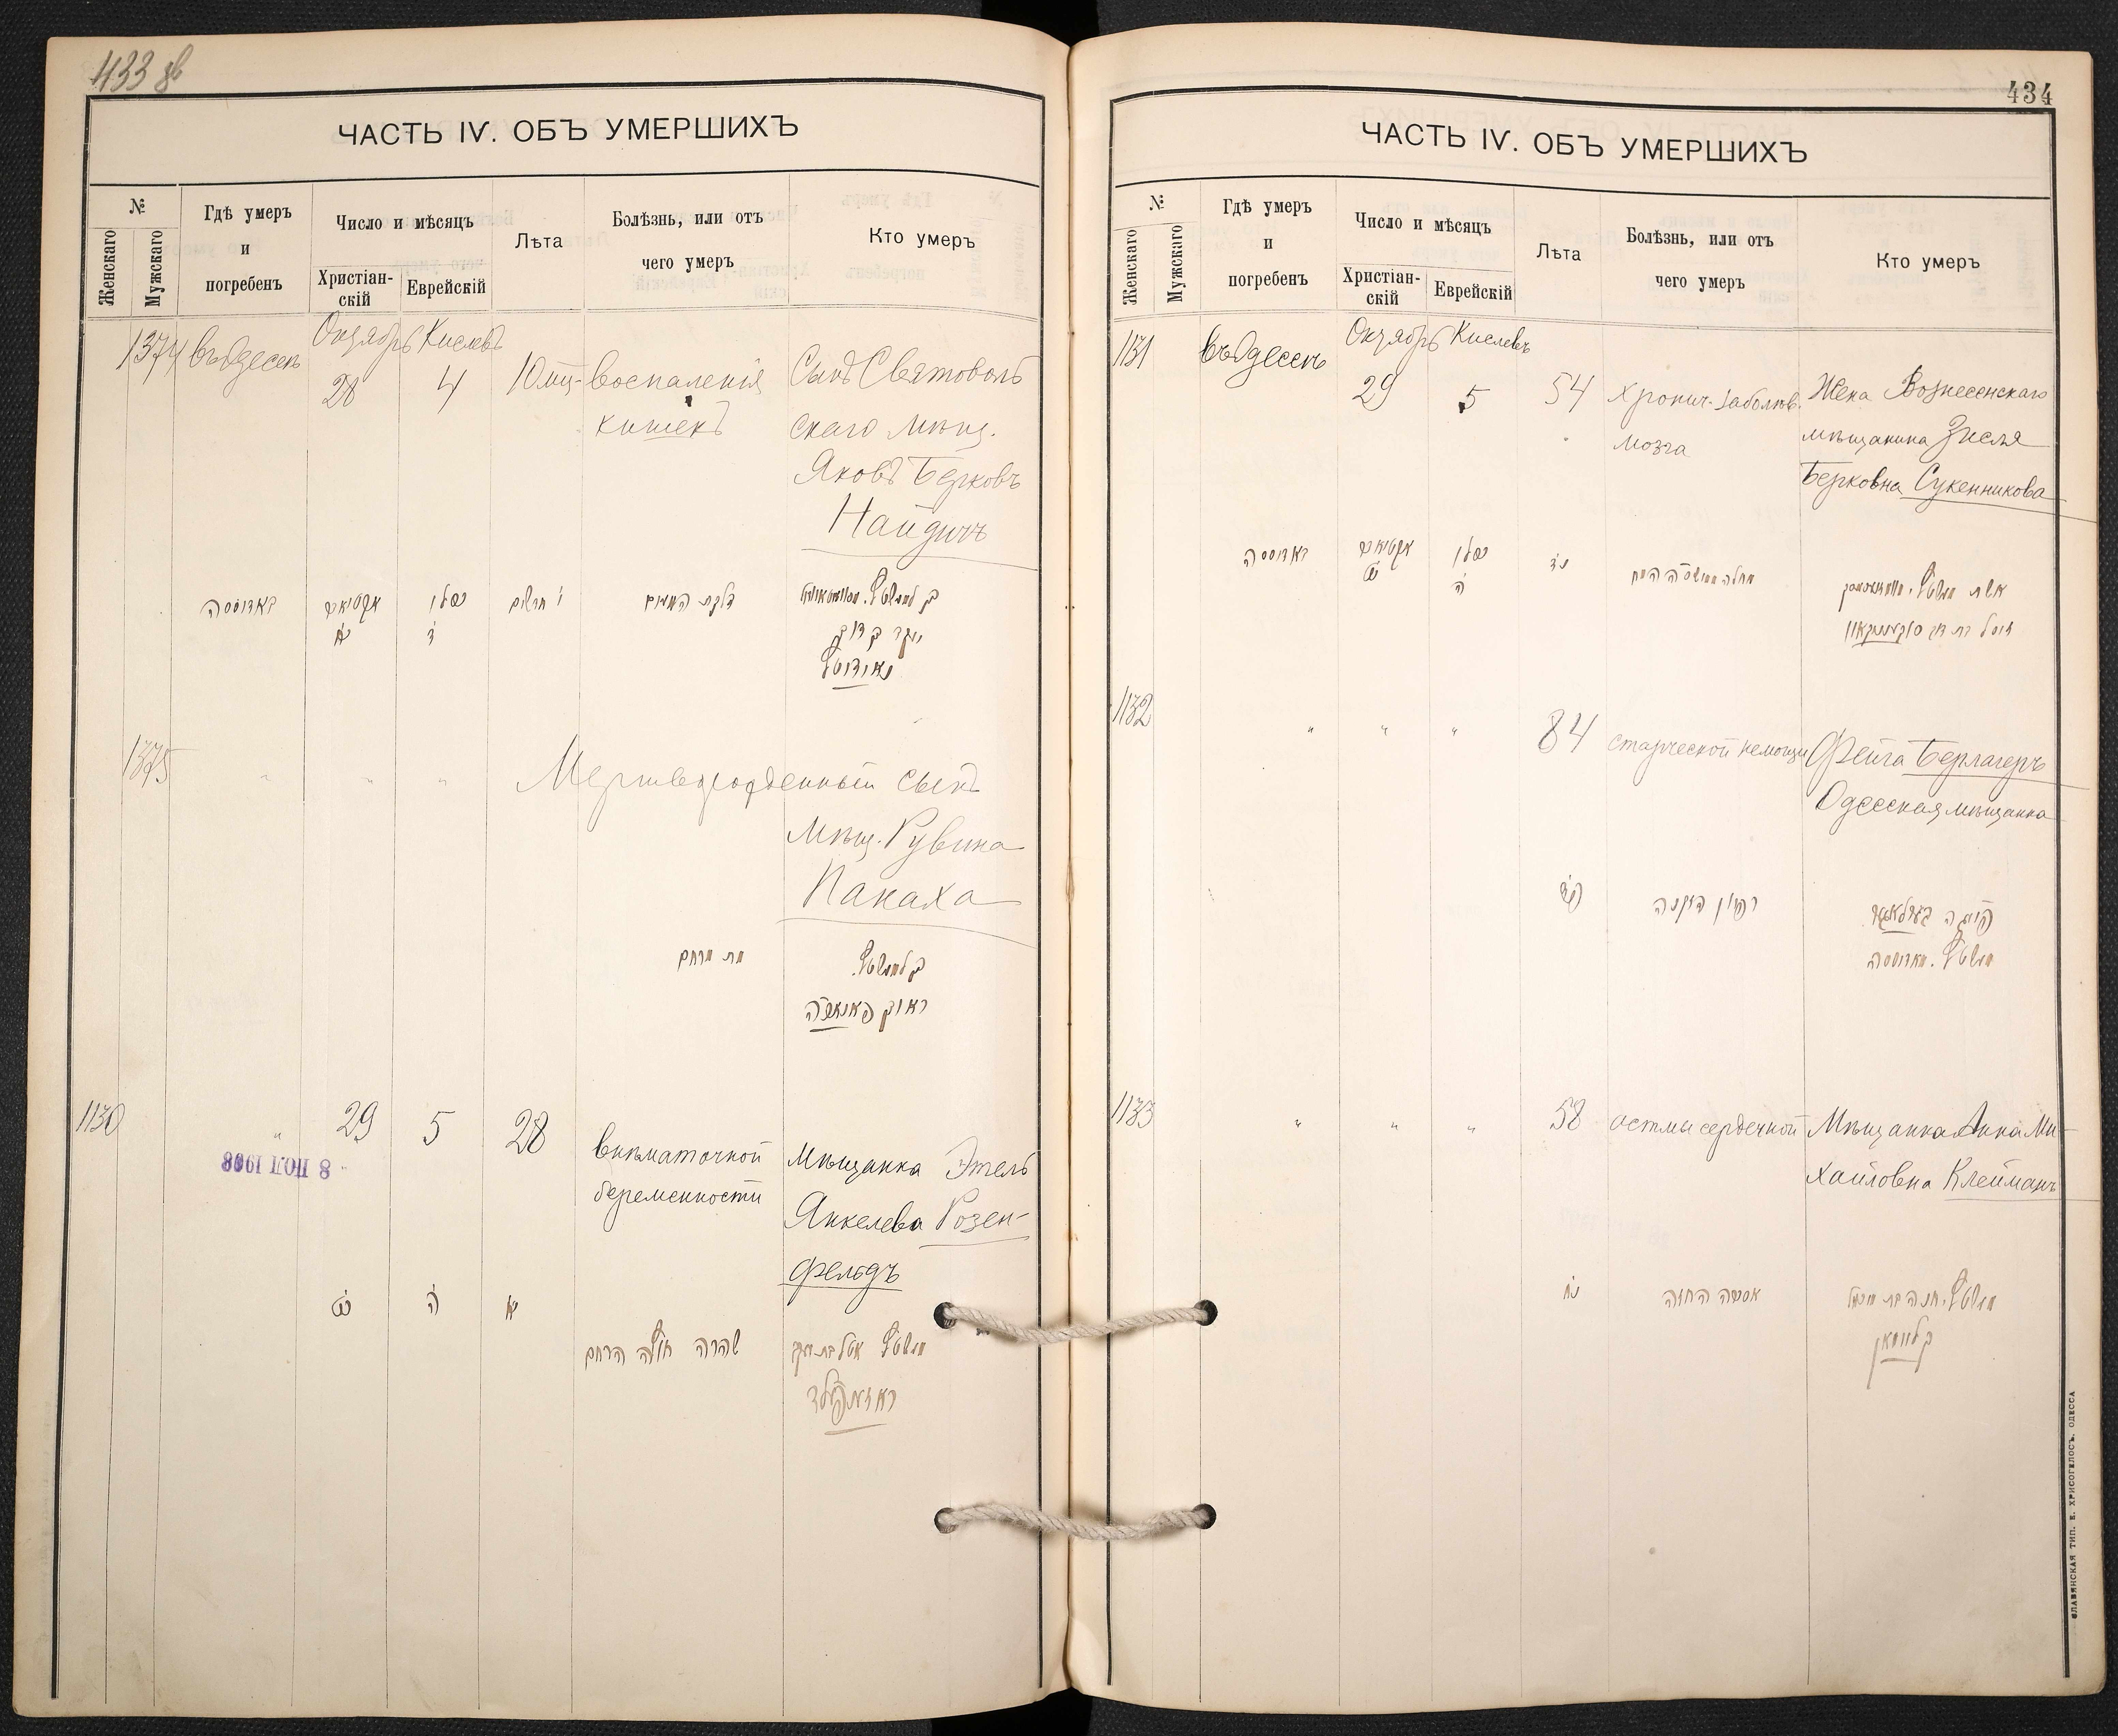 433 об
ЧАСТЬ IV. ОБЪ УМЕРШИХЪ
№
Женскаго
Мужскаго
Гдѣ умеръ
и
погребенъ
Число и мѣсяцъ
Христіан-
скій
Еврейскій
Лѣта
Болѣзнь, или отъ
чего умеръ
Кто умеръ
1374 въ Одессѣ
Октябрь Кислевъ
28 4 10 мц. воспаленія
кишекъ
Сынъ Святополь
скаго мѣщ.
Яковъ Берковъ
Найдичъ
באדוססה
אקטיאבר
כסלו
ד
י חדשים
דלקת המעים
1375 " " " Мертворожденный сынъ
Мѣщ. Рувина
Панаха
מת מרחם
ראובן
1130 " 29 5 28 внѣматочной
беременности
Мѣщанка Этель
Янкелева Розен-
фельдъ
8 ПОЛ 1908
ה
הרחם
434
ЧАСТЬ IV. ОБЪ УМЕРШИХЪ
№
Женскаго
Мужскаго
Гдѣ умеръ
и
погребенъ
Число и мѣсяцъ
Христіан-
скій
Еврейскій
Лѣта
Болѣзнь, или отъ
чего умеръ
Кто умеръ
1131 въ Одессѣ
Октябрь Кислевъ
29 5 54 хронич. заболѣв.
мозга
Жена Вознесенскаго
мѣщанина Зисля
Берковна Сукенникова
באדוססה
אקטיאבר
כסלו
ה
נד
אשת
1132 " " " 84 старческой немощи
Фейга Берлагеръ
Одесская мѣщанка
פד
זקנה
פייגה
1133 " " " 58 астмы сердечной
Мѣщанка Анна Ми-
хайловна Клейманъ
נח
קליימאן
СЛАВЯНСКАЯ ТИП. Е. ХРИСОГЕЛОСЪ. ОДЕССА